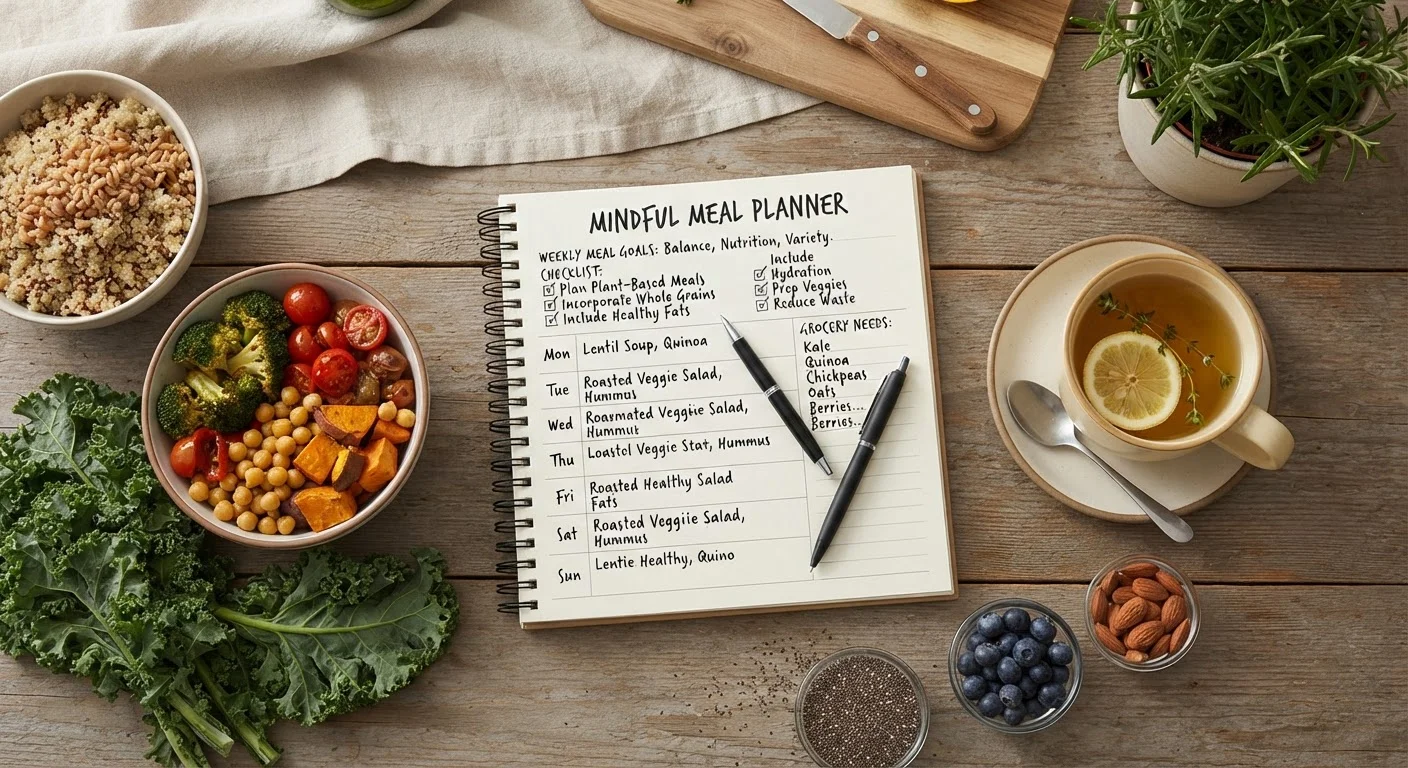 MINDFUL MEAL PLANNER
WEEKLY MEAL GOALS: Balance, Nutrition, Variety.
CHECKLIST:
Plan Plant-Basd Meals
Incorporate Whole Grains
Include Healthy Fats
Include
Hydration
Prep Veggies
Reduce Waste
Mon Lentil Soup, Quinoa
Tue Roasted Veggie Salad,
Hummus
Wed Roarmated Veggie Salad,
Hummut
Thu Loastol Veggie Stat, Hummus
Fri Roasted Healthy Salad
Fats
Sat Roasted Veggiie Salad,
Hummus
Sun Lentie Healthy, Quino
GROCERY NEEDS:
Kale
Quinoa
Chickpeas
Oats
Berries...
Berries...